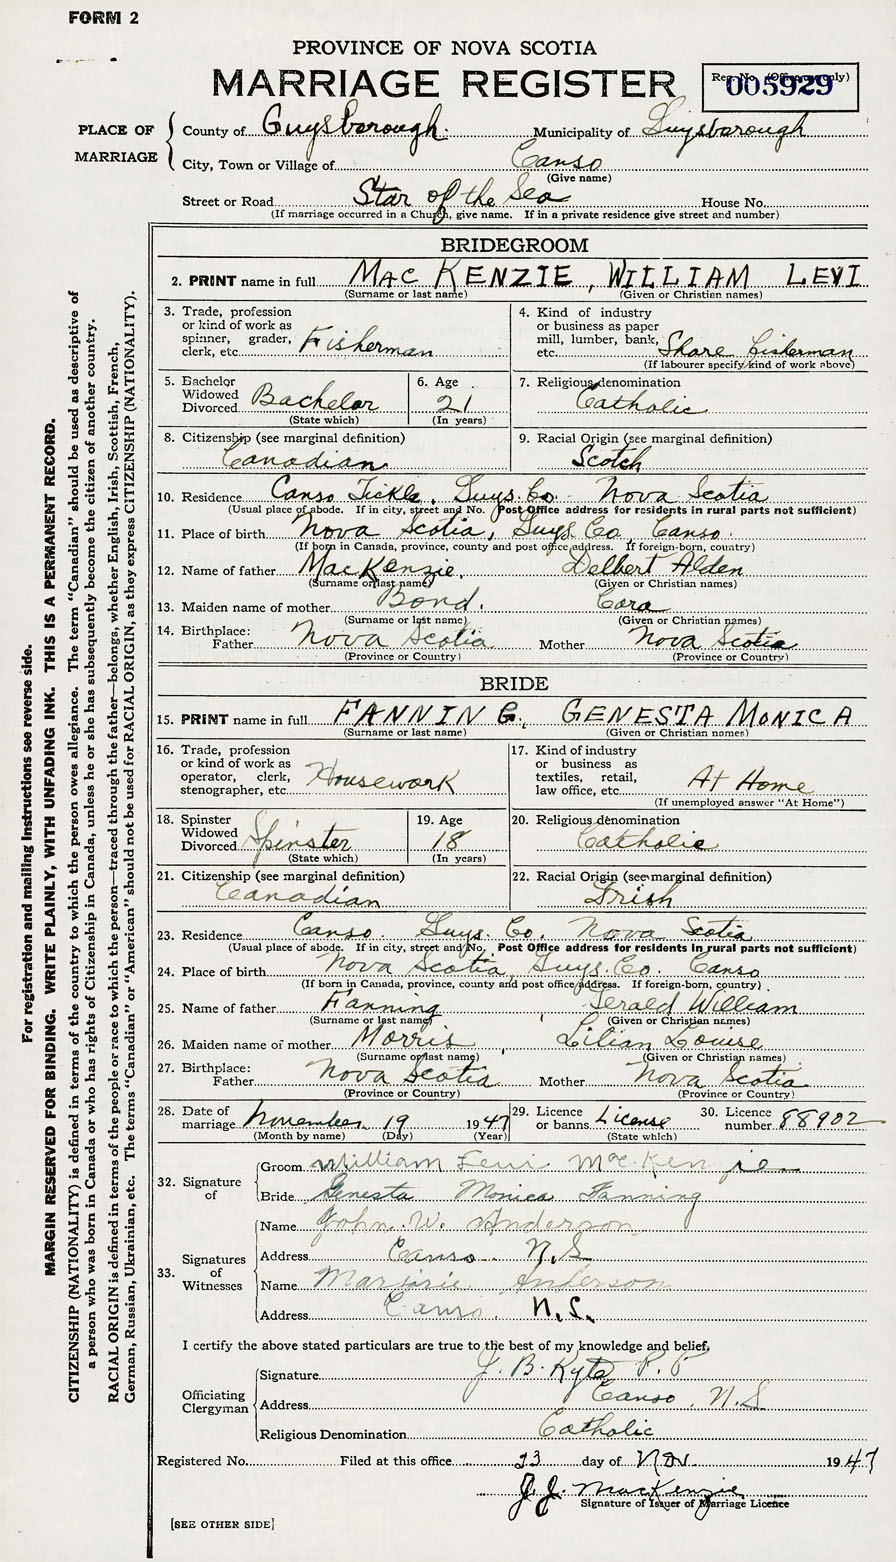 FORM 2
PROVINCE OF NOVA SCOTIA
MARRIAGE REGISTER
Reg. No. (Office use only)
005929
PLACE OF MARRIAGE
County of Guysborough. Municipality of Guysborough
City, Town or Village of Canso
(Give name)
Street or Road Star of the Sea House No.
(If marriage occurred in a Church, give name. If in a private residence give street and number)
BRIDEGROOM
2. PRINT name in full MACKENZIE, WILLIAM LEVI
(Surname or last name) (Given or Christian names)
3. Trade, profession or kind of work as spinner, grader, clerk, etc. Fisherman
4. Kind of industry or business as paper mill, lumber, bank, etc. Shore fisherman
(If labourer specify kind of work above)
5. Bachelor Widowed Divorced Bachelor
(State which)
6. Age 21
(In years)
7. Religious denomination
Catholic
8. Citizenship (see marginal definition)
Canadian
9. Racial Origin (see marginal definition)
Scotch
10. Residence Canso Tickle, Guys. Co. Nova Scotia
(Usual place of abode. If in city, street and No. Post Office address for residents in rural parts not sufficient)
11. Place of birth Nova Scotia, Guys. Co, Canso.
(If born in Canada, province, county and post office address. If foreign-born, country)
12. Name of father MacKenzie, Delbert Alden
(Surname or last name) (Given or Christian names)
13. Maiden name of mother Bond. Cora
(Surname or last name) (Given or Christian names)
14. Birthplace: Father Nova Scotia Mother Nova Scotia
(Province or Country) (Province or Country)
BRIDE
15. PRINT name in full FANNING, GENESTA MONICA
(Surname or last name) (Given or Christian names)
16. Trade, profession or kind of work as operator, clerk, stenographer, etc. Housework
17. Kind of industry or business as textiles, retail, law office, etc. At Home
(If unemployed answer "At Home")
18. Spinster Widowed Divorced Spinster
(State which)
19. Age 18
(In years)
20. Religious denomination
Catholic
21. Citizenship (see marginal definition)
Canadian
22. Racial Origin (see marginal definition)
Irish
23. Residence Canso. Guys. Co. Nova Scotia
(Usual place of abode. If in city, street and No. Post Office address for residents in rural parts not sufficient)
24. Place of birth Nova Scotia, Guys. Co. Canso
(If born in Canada, province, county and post office address. If foreign-born, country)
25. Name of father Fanning, Gerald William
(Surname or last name) (Given or Christian names)
26. Maiden name of mother Morris, Lilian Louise
(Surname or last name) (Given or Christian names)
27. Birthplace: Father Nova Scotia Mother Nova Scotia
(Province or Country) (Province or Country)
28. Date of marriage November 19 1947
(Month by name) (Day) (Year)
29. Licence or banns License
(State which)
30. Licence number 88902
32. Signature of
Groom William Levi MacKenzie
Bride Genesta Monica Fanning
33. Signatures of Witnesses
Name John W. Anderson
Address Canso N.S
Name Marjorie Anderson
Address Canso. N.S.
I certify the above stated particulars are true to the best of my knowledge and belief,
Officiating Clergyman
Signature J. B. Kyte P. P
Address Canso, N.S
Religious Denomination Catholic
Registered No. Filed at this office 23 day of Nov. 1947
J. J. MacKenzie
Signature of Issuer of Marriage Licence
[SEE OTHER SIDE]
For registration and mailing instructions see reverse side.
MARGIN RESERVED FOR BINDING. WRITE PLAINLY, WITH UNFADING INK. THIS IS A PERMANENT RECORD.
CITIZENSHIP (NATIONALITY) is defined in terms of the country to which the person owes allegiance. The term "Canadian" should be used as descriptive of
a person who was born in Canada or who has rights of Citizenship in Canada, unless he or she has subsequently become the citizen of another country.
RACIAL ORIGIN is defined in terms of the people or race to which the person—traced through the father—belongs, whether English, Irish, Scottish, French,
German, Russian, Ukrainian, etc. The terms "Canadian" or "American" should not be used for RACIAL ORIGIN, as they express CITIZENSHIP (NATIONALITY).